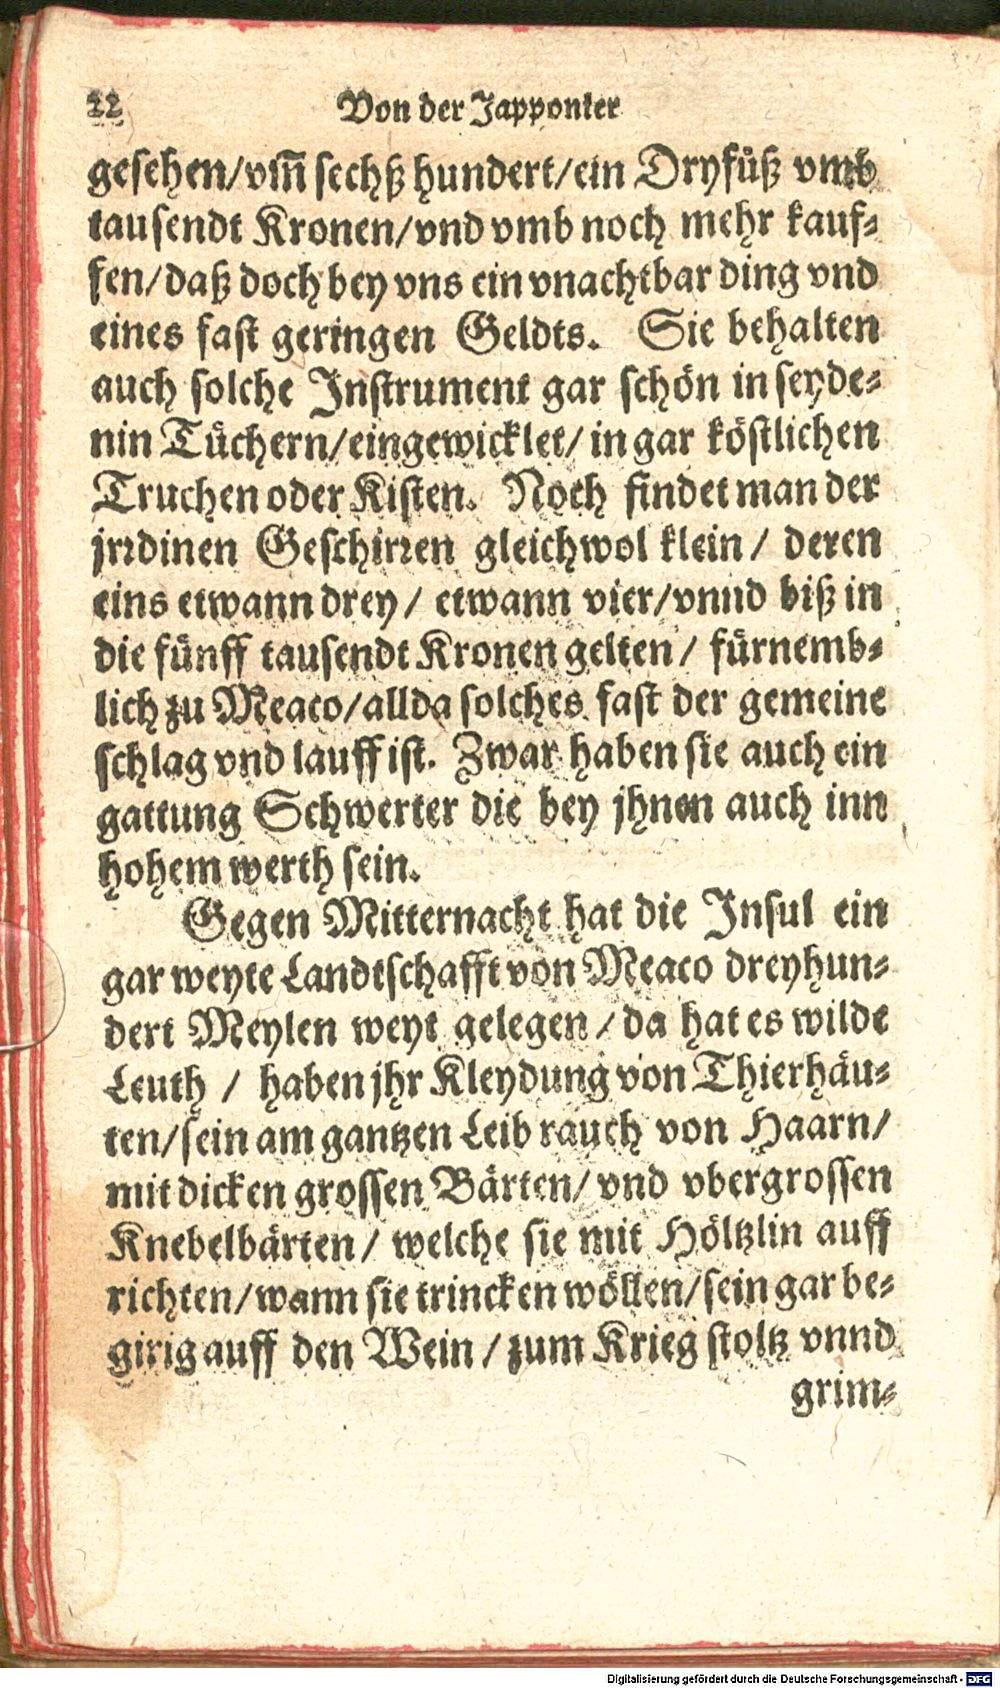 22 Von der Japponier
gesehen/vm̃ sechß hundert/ein Dryfuͤß vmb
tausendt Kronen/vnd vmb noch mehr kauf⸗
fen/daß doch bey vns ein vnachtbar ding vnd
eines fast geringen Geldts. Sie behalten
auch solche Instrument gar schoͤn in seyde⸗
nin Tuͤchern/eingewicklet/in gar koͤstlichen
Truchen oder Kisten. Noch findet man der
jrꝛdinen Geschirꝛen gleichwol klein/ deren
eins etwann drey/ etwann vier/vnnd biß in
die fuͤnff tausendt Kronen gelten/ fuͤrnemb⸗
lich zu Meaco/allda solches fast der gemeine
schlag vnd lauff ist. Zwar haben sie auch ein
gattung Schwerter die bey jhnen auch inn
hohem werth sein.
Gegen Mitternacht hat die Insul ein
gar weyte Landtschafft von Meaco dreyhun⸗
dert Meylen weyt gelegen/da hat es wilde
Leuth / haben jhr Kleydung von Thierhaͤu⸗
ten/sein am gantzen Leib rauch von Haarn/
mit dicken grossen Baͤrten/vnd vbergrossen
Knebelbaͤrten/ welche sie mit Hoͤltzlin auff
richten/wann sie trincken woͤllen/sein gar be⸗
girig auff den Wein/zum Krieg stoltz vnnd
grim⸗
Digitalisierung gefördert durch die Deutsche Forschungsgemeinschaft - DFG